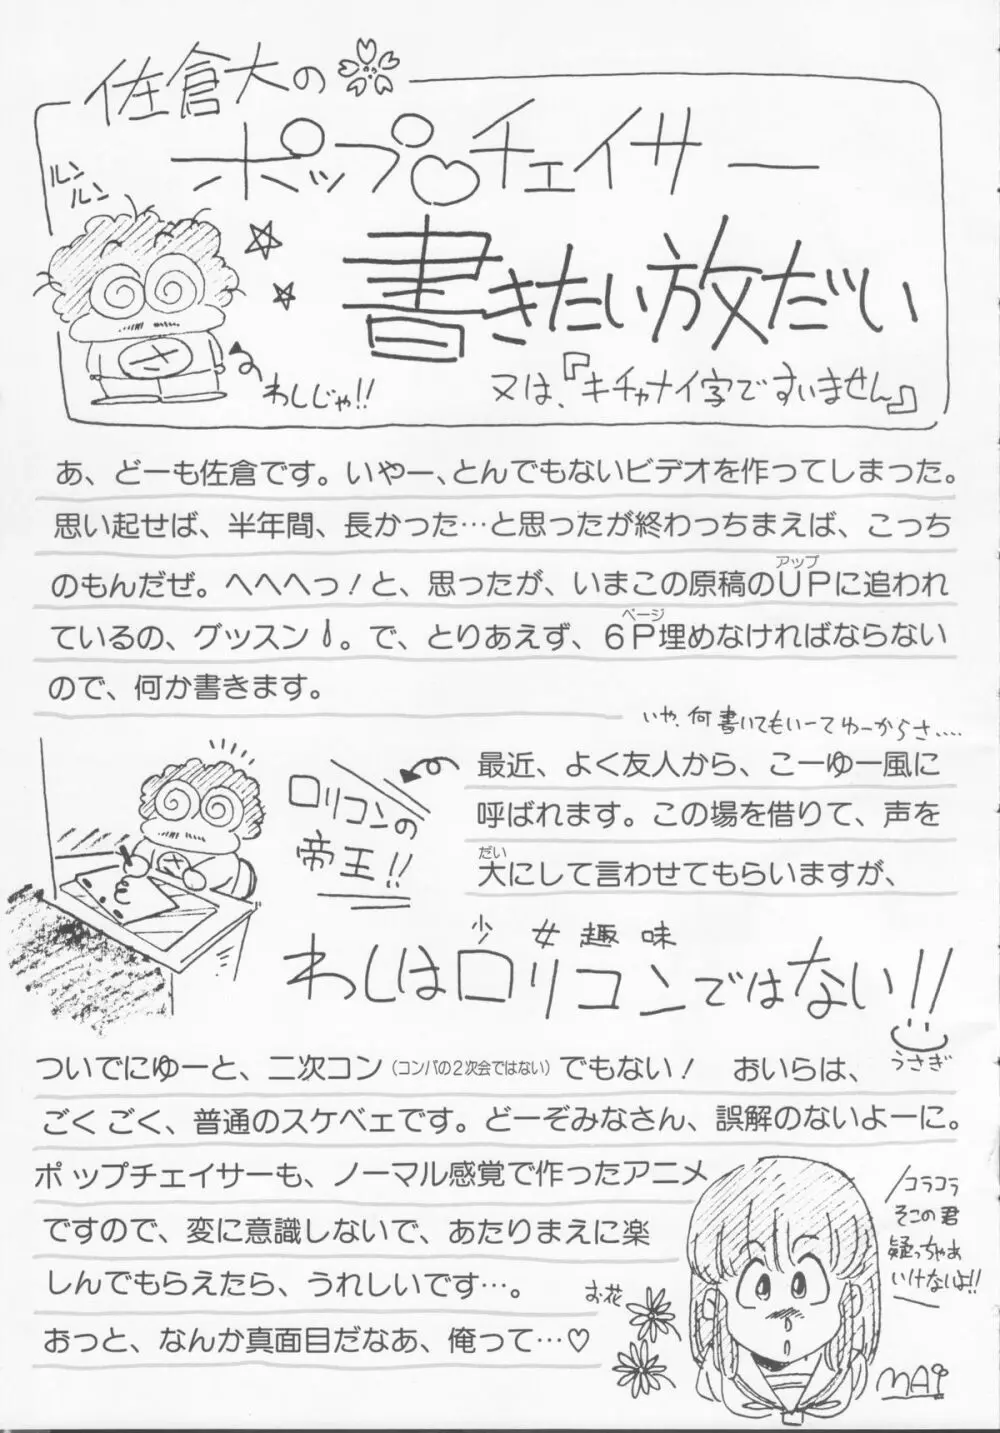 佐倉大の
ポップ♡チェイサー
書きたい放だい
ルンルン
わしじゃ!!
又は、『キチャナイ字ですいません』
あ、どーも佐倉です。いやー、とんでもないビデオを作ってしまった。
思い起せば、半年間、長かった…と思ったが終わっちまえば、こっち
のもんだぜ。へへへっ！と、思ったが、いまこの原稿のＵＰに追われ
アップ
ているの、グッスン。で、とりあえず、６Ｐ埋めなければならない
ページ
ので、何か書きます。
いや、何書いてもいーてゆーからさ....
ロリコンの
帝王!!
最近、よく友人から、こーゆー風に
呼ばれます。この場を借りて、声を
大にして言わせてもらいますが、
だい
少女趣味
わしはロリコンではない!!
うさぎ
ついでにゆーと、二次コン（コンパの２次会ではない）でもない！　おいらは、
ごくごく、普通のスケベェです。どーぞみなさん、誤解のないよーに。
ポップチェイサーも、ノーマル感覚で作ったアニメ
ですので、変に意識しないで、あたりまえに楽
しんでもらえたら、うれしいです…。
おっと、なんか真面目だなあ、俺って…♡
お花
コラコラ
そこの君
疑っちゃあ
いけないよ!!
MAI